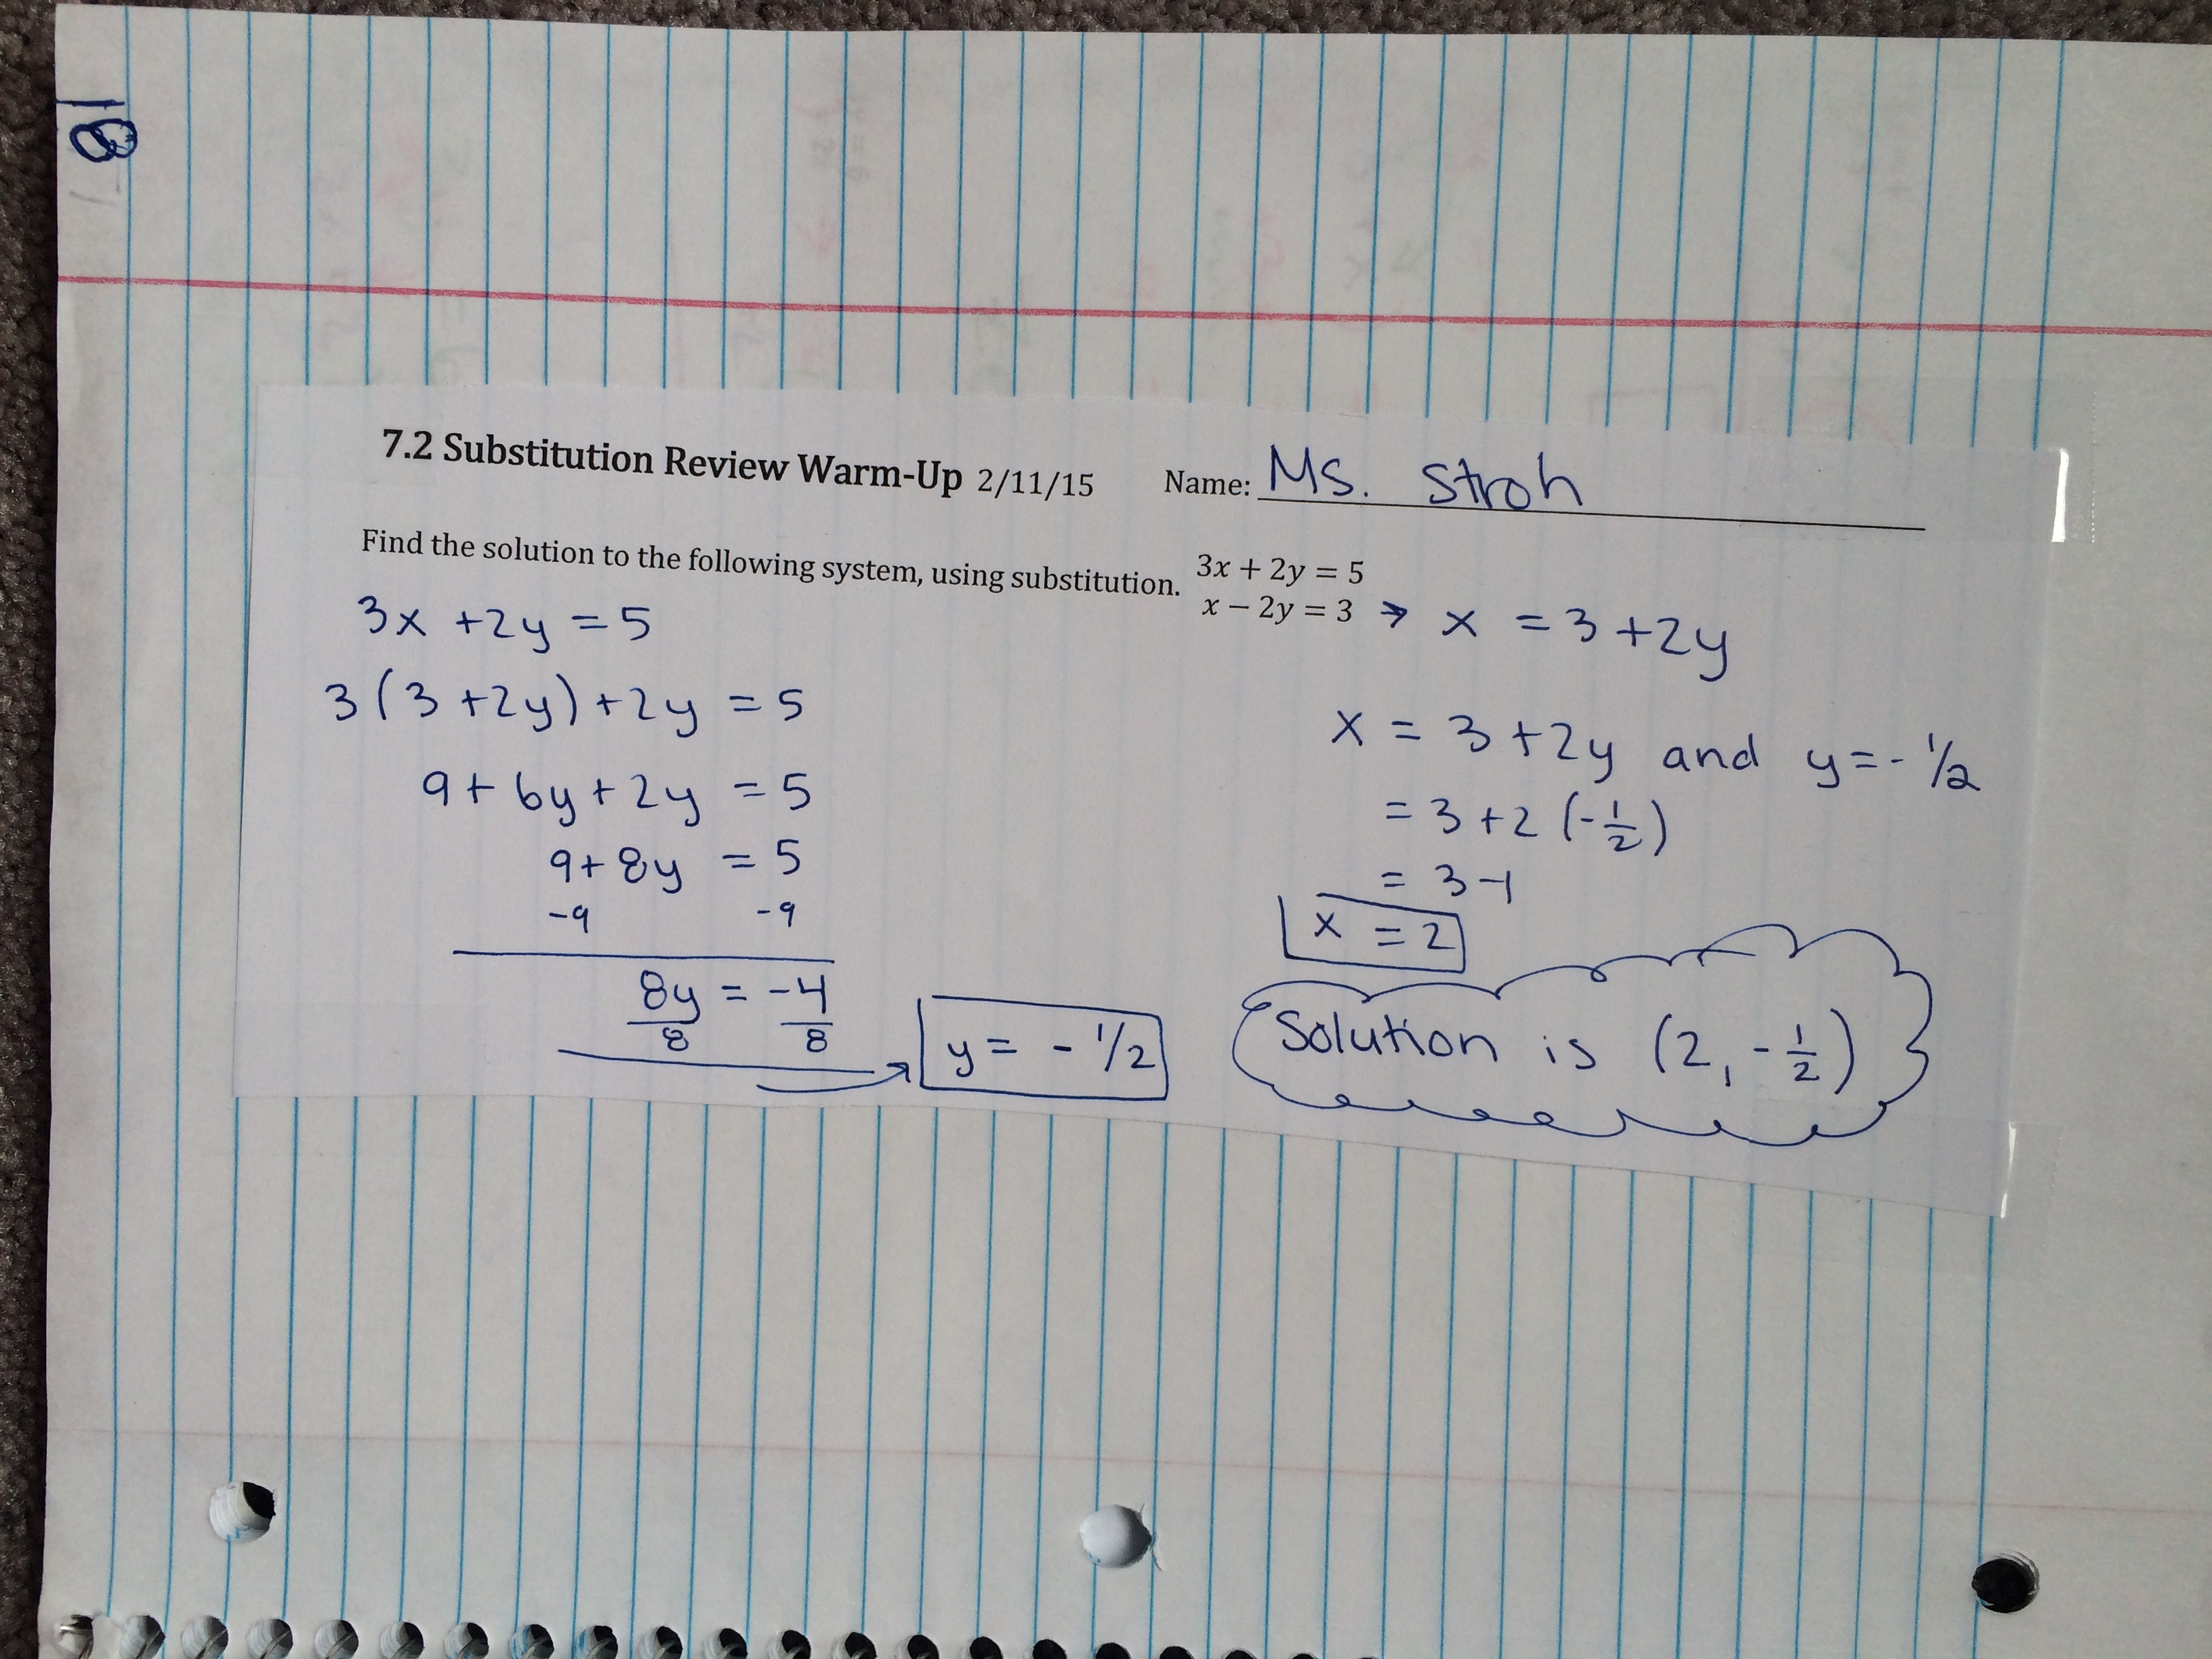 81
7.2 Substitution Review Warm-Up 2/11/15 Name: Ms. Stroh
Find the solution to the following system, using substitution.
3x + 2y = 5
x − 2y = 3 → x = 3 + 2y
3x + 2y = 5
3(3 + 2y) + 2y = 5
9 + 6y + 2y = 5
9 + 8y = 5
-9 -9
8y = -4
8 8
y = - 1/2
x = 3 + 2y and y = - 1/2
= 3 + 2 (-1/2)
= 3 - 1
x = 2
Solution is (2, -1/2)